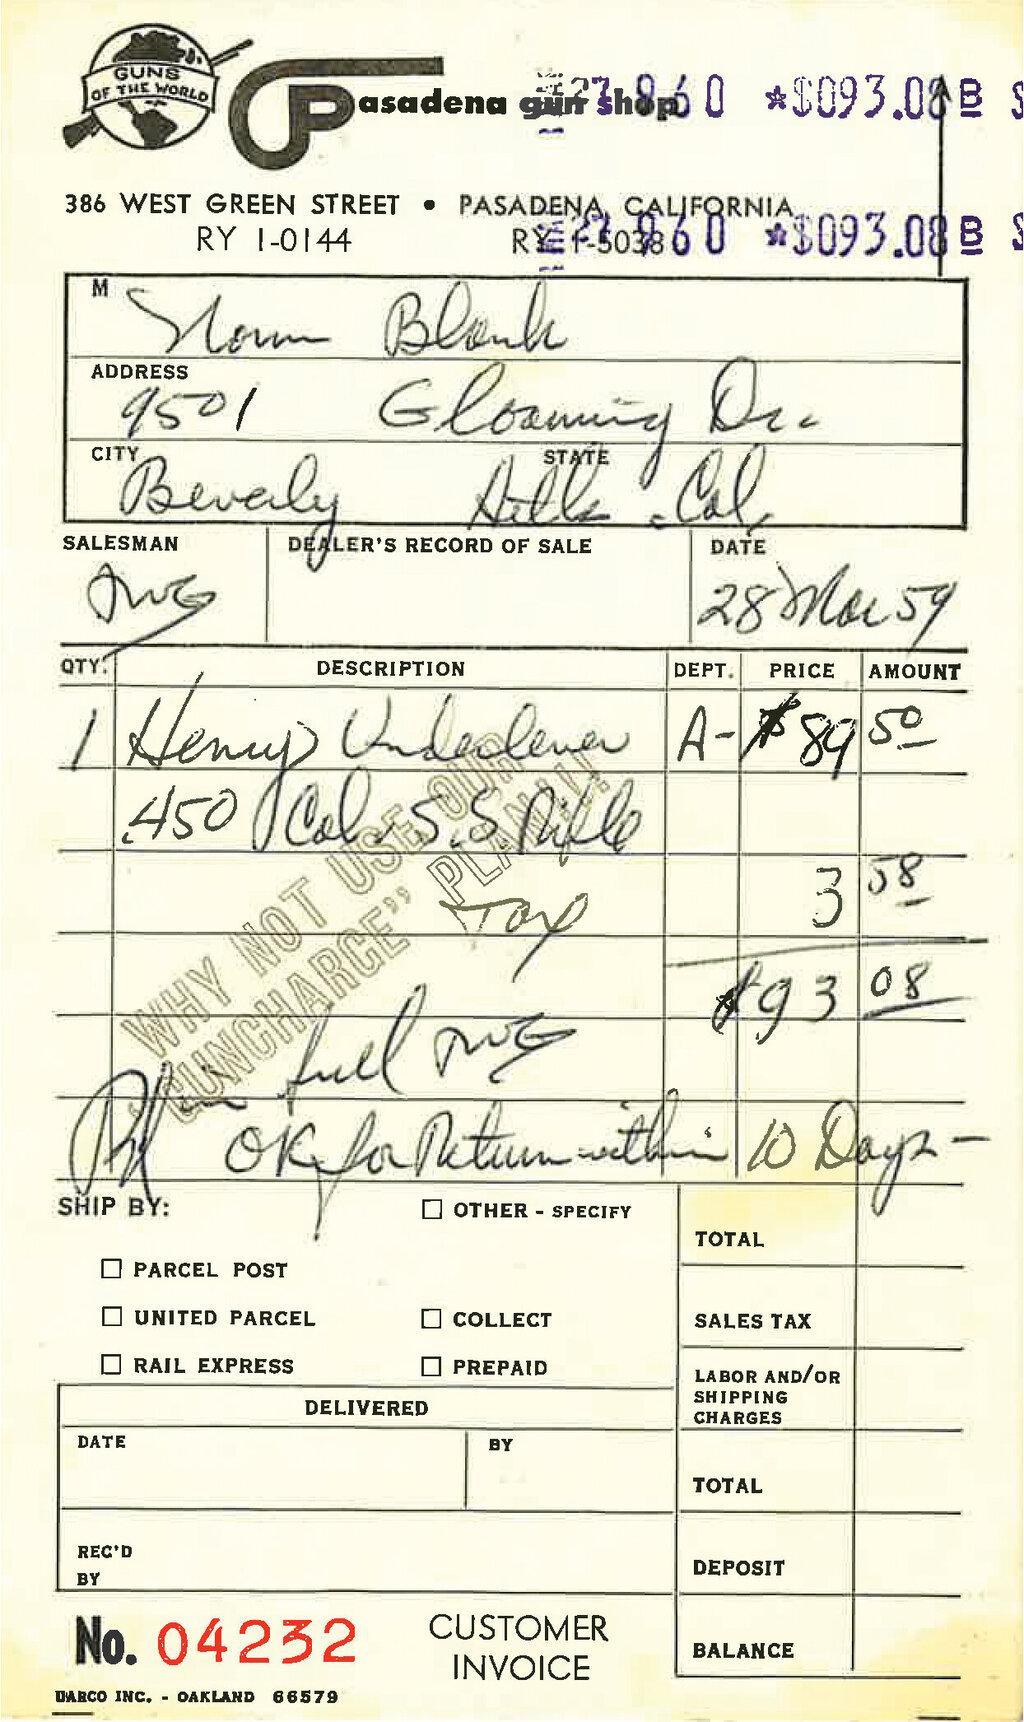 GUNS
OF THE WORLD
Pasadena gun shop
27 860 *$093.08 B $
386 WEST GREEN STREET • PASADENA, CALIFORNIA
RY 1-0144 RY 1-5038
27 860 *$093.08 B $
M Norm Blank
ADDRESS
9501 Gloaming Dr.
CITY STATE
Beverly Hills. Cal.
SALESMAN DEALER'S RECORD OF SALE DATE
28 Mar 59
QTY. DESCRIPTION DEPT. PRICE AMOUNT
1 Henry Underlever A- $89 50
.450 Cal. S.S. Rifle
Tax 3 58
$93 08
WHY NOT USE OUR
"GUNCHARGE" PLAN!!!
Pd in full
OK for Return within 10 Days -
SHIP BY:
OTHER - SPECIFY
PARCEL POST
UNITED PARCEL
COLLECT
RAIL EXPRESS
PREPAID
TOTAL
SALES TAX
LABOR AND/OR
SHIPPING
CHARGES
TOTAL
DEPOSIT
BALANCE
DELIVERED
DATE BY
REC'D
BY
No. 04232
CUSTOMER
INVOICE
DARCO INC. - OAKLAND 66579